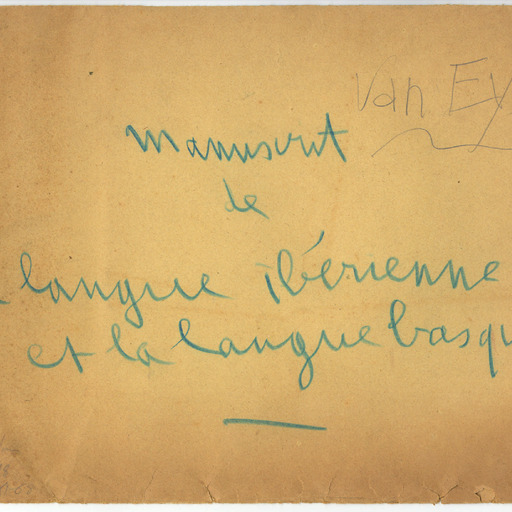 Van Ey
manuscrit
de
langue ibérienne
et la langue basqu